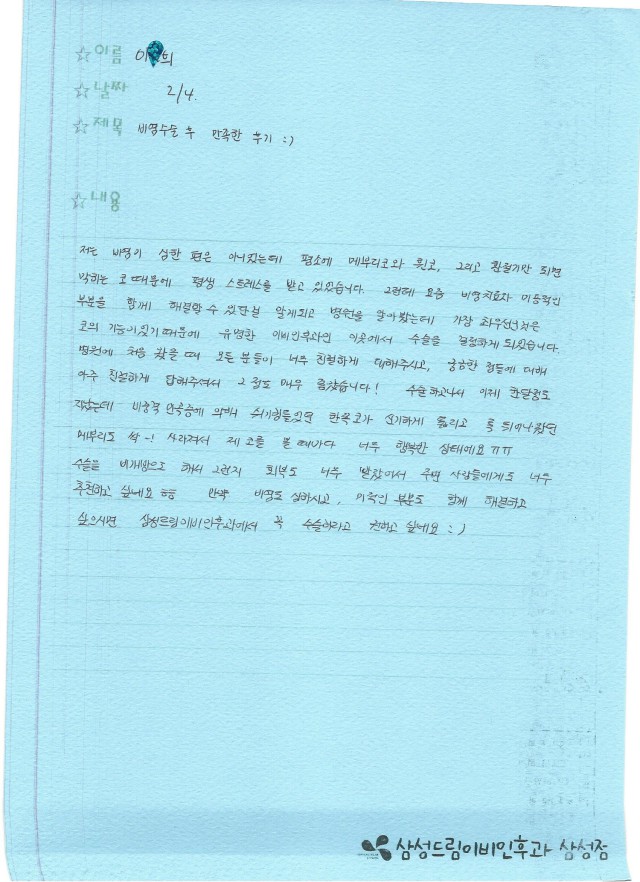 ☆ 이름 이 희
☆ 날짜 2/4.
☆ 제목 비염수술 후 만족한 후기 :)
☆ 내용
저는 비염이 심한 편은 아니였는데 평소에 메부리코와 휜코, 그리고 환절기만 되면
막히는 코 때문에 평생 스트레스를 받고 있었습니다. 그런데 요즘 비염치료와 미용적인
부분을 함께 해결할 수 있단걸 알게되고 병원을 알아봤는데 가장 최우선인것은
코의 기능이였기 때문에 유명한 이비인후과인 이곳에서 수술을 결정하게 되었습니다.
병원에 처음 갔을 때 모든 분들이 너무 친절하게 대해주시고, 궁금한 점들에 대해
아주 친절하게 답해주셔서 그 점도 매우 좋았습니다! 수술하고나서 이제 한달정도
지났는데 비중격 만곡증에 의해 휘어있던 한쪽코가 신기하게 뚫리고 툭 튀어나왔던
메부리도 싹~! 사라져서 제 코를 볼 때마다 너무 행복한 상태에요 ㅠㅠ
수술을 비개방으로 해서 그런지 회복도 너무 빨랐어서 주변 사람들에게도 너무
추천하고 싶네요 ㅎㅎ 만약 비염도 심하시고, 미적인 부분도 함께 해결하고
싶으시면 삼성드림이비인후과에서 꼭 수술하라고 전하고 싶네요 :)
삼성드림이비인후과 삼성점